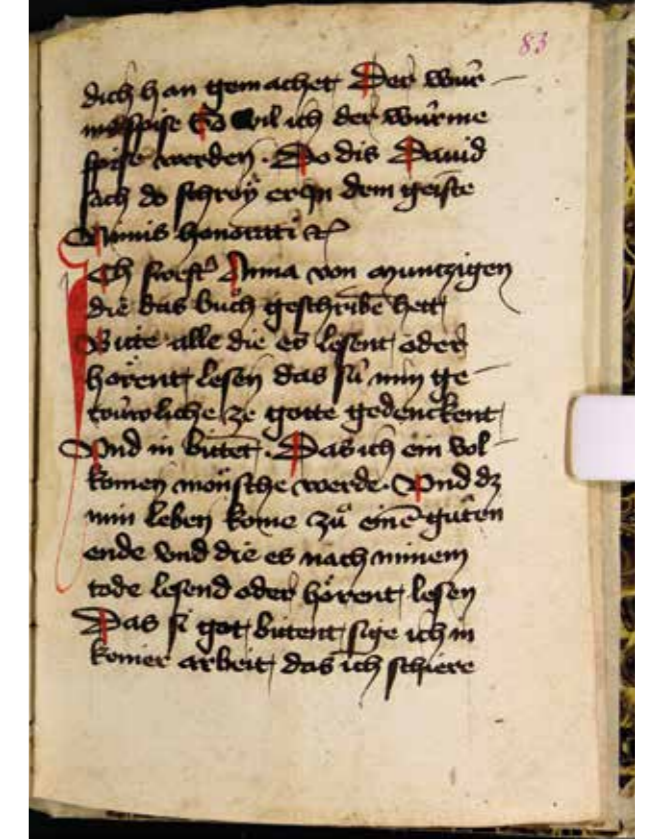 83
dich han gemachet Der wúr
spise So wil ich der wúrme
spise werden. Do dis Dauid
sach do schrey er Jn dem geiste
Nimis honorati
Jch swest Anna von muntzigen
die das buch geschribē hett
Bitte alle die es lesent oder
hörent lesen das sú min ge
trúwliche ze gotte gedenckent
Vnd in bittet. Das ich ein vol
komen mönsche werde. Vnd dz
min leben kome zů einē gůten
ende vnd die es nach minem
tode lesend oder hörent lesen
Das si got bittent sige ich in
keiner arbeit das ich schiere